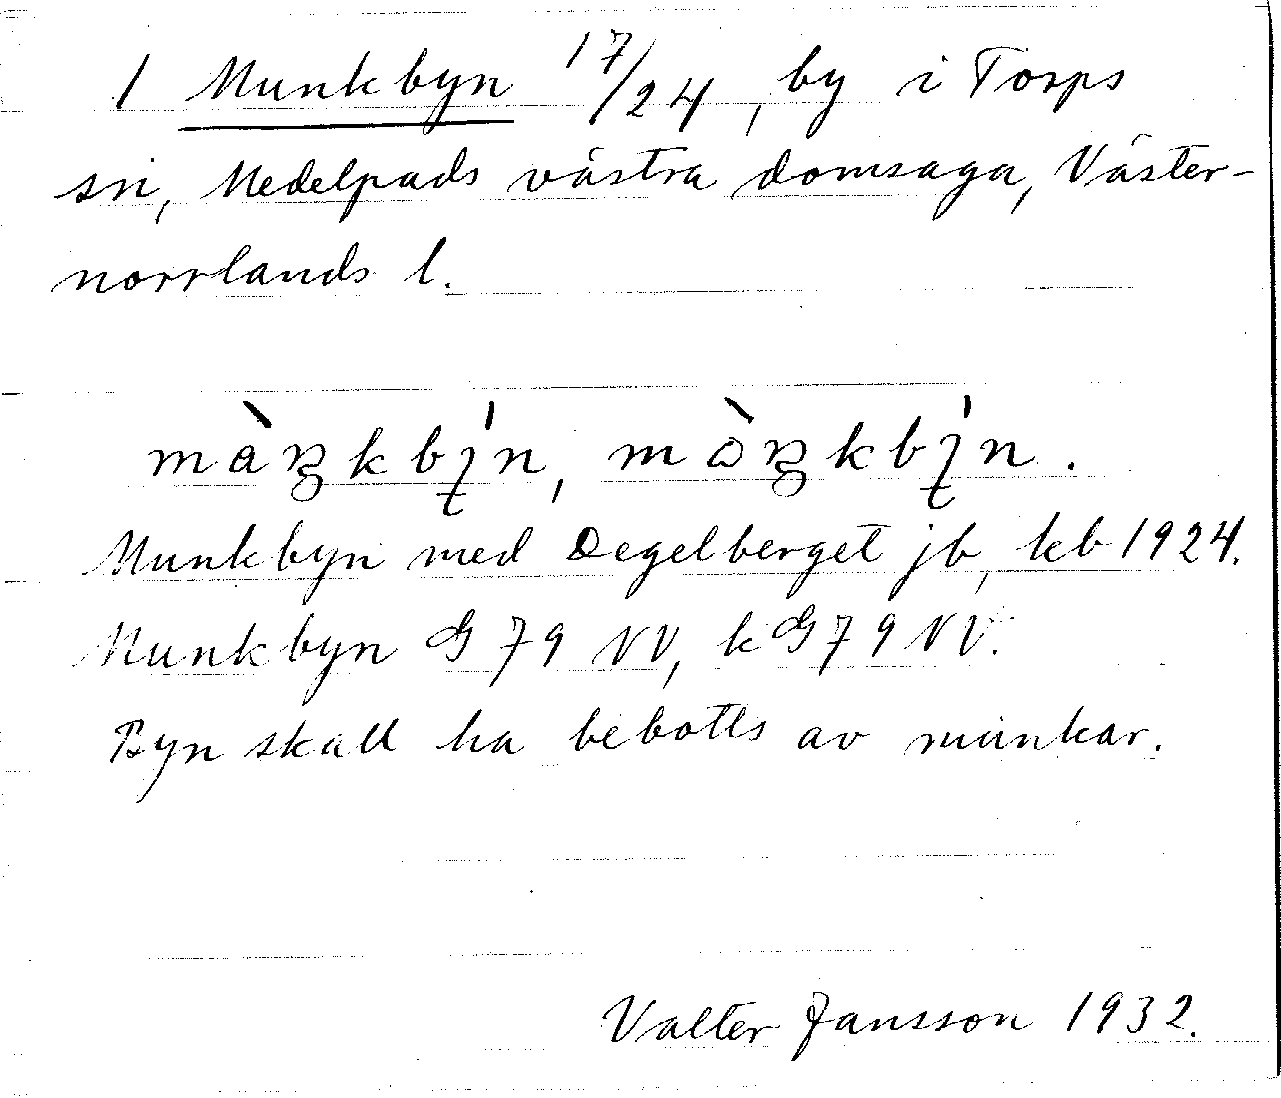 1 Munkbyn 17/24, by i Torps
sn, Medelpads västra domsaga, Väster-
norrlands l.
màŋkbýn, mòŋkbýn.
Munkbyn med Degelberget jb, kb 1924.
Munkbyn G 79 NV, k G 79 NV.
Byn skall ha bebotts av munkar.
Valter Jansson 1932.